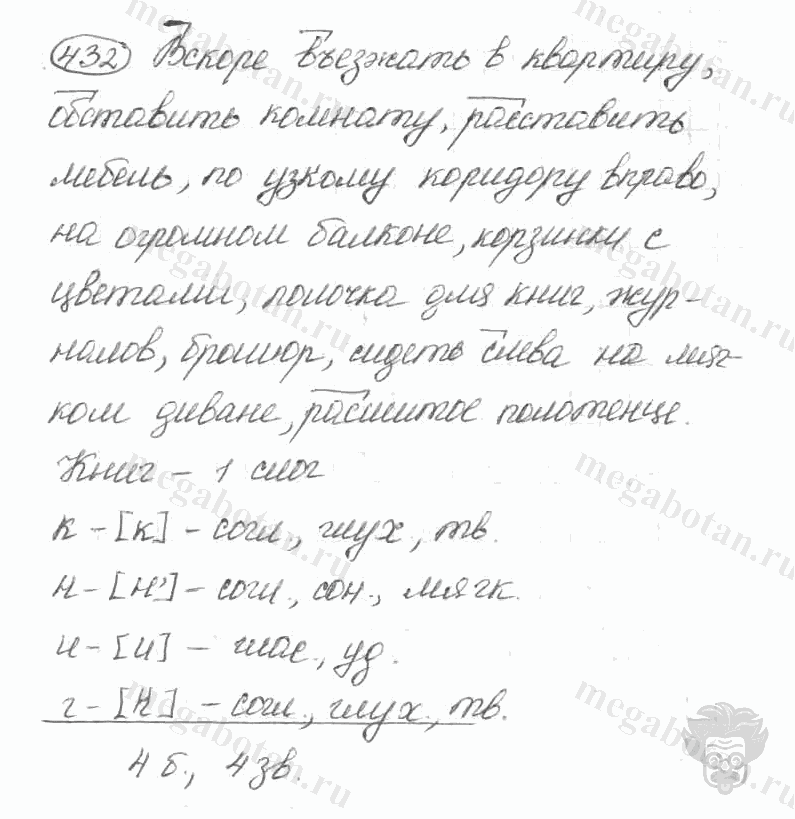 432 Вскоре въезжать в квартиру,
обставить комнату, расставить
мебель, по узкому коридору вправо,
на огромном балконе, корзинки с
цветами, полочка для книг, жур-
налов, брошюр, сидеть слева на мяг-
ком диване, расшитое полотенце.
Книг – 1 слог
к – [к] – согл., глух, тв.
н – [н'] – согл., сон., мягк.
и – [и] – глас., уд.
г – [к] – согл., глух., тв.
4 б., 4 зв.
megabotan.ru